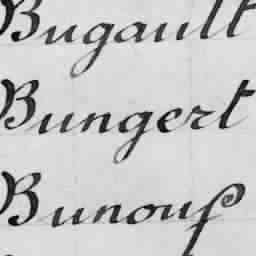 Bugault
Bungert
Bunouf